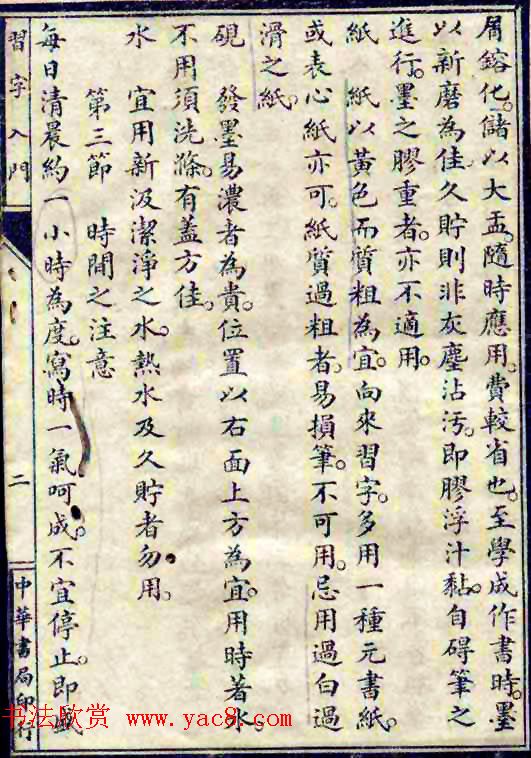 屑鎔化。儲以大盂。隨時應用。費較省也。至學成作書時。墨
以新磨為佳。久貯則非灰塵沾汚。即膠浮汁黏。自碍筆之
進行。墨之膠重者。亦不適用。
紙 紙以黃色而質粗為宜。向來習字。多用一種元書紙。
或表心紙亦可。紙質過粗者。易損筆。不可用。忌用過白過
滑之紙。
硯 發墨易濃者為貴。位置以右面上方為宜。用時著水。
不用須洗滌。有蓋方佳。
水 宜用新汲潔淨之水。熱水及久貯者勿用。
第三節 時間之注意
每日清晨約一小時為度。寫時一氣呵成。不宜停止。即盛
習字入門
二
中華書局印行
书法欣赏 www.yac8.com